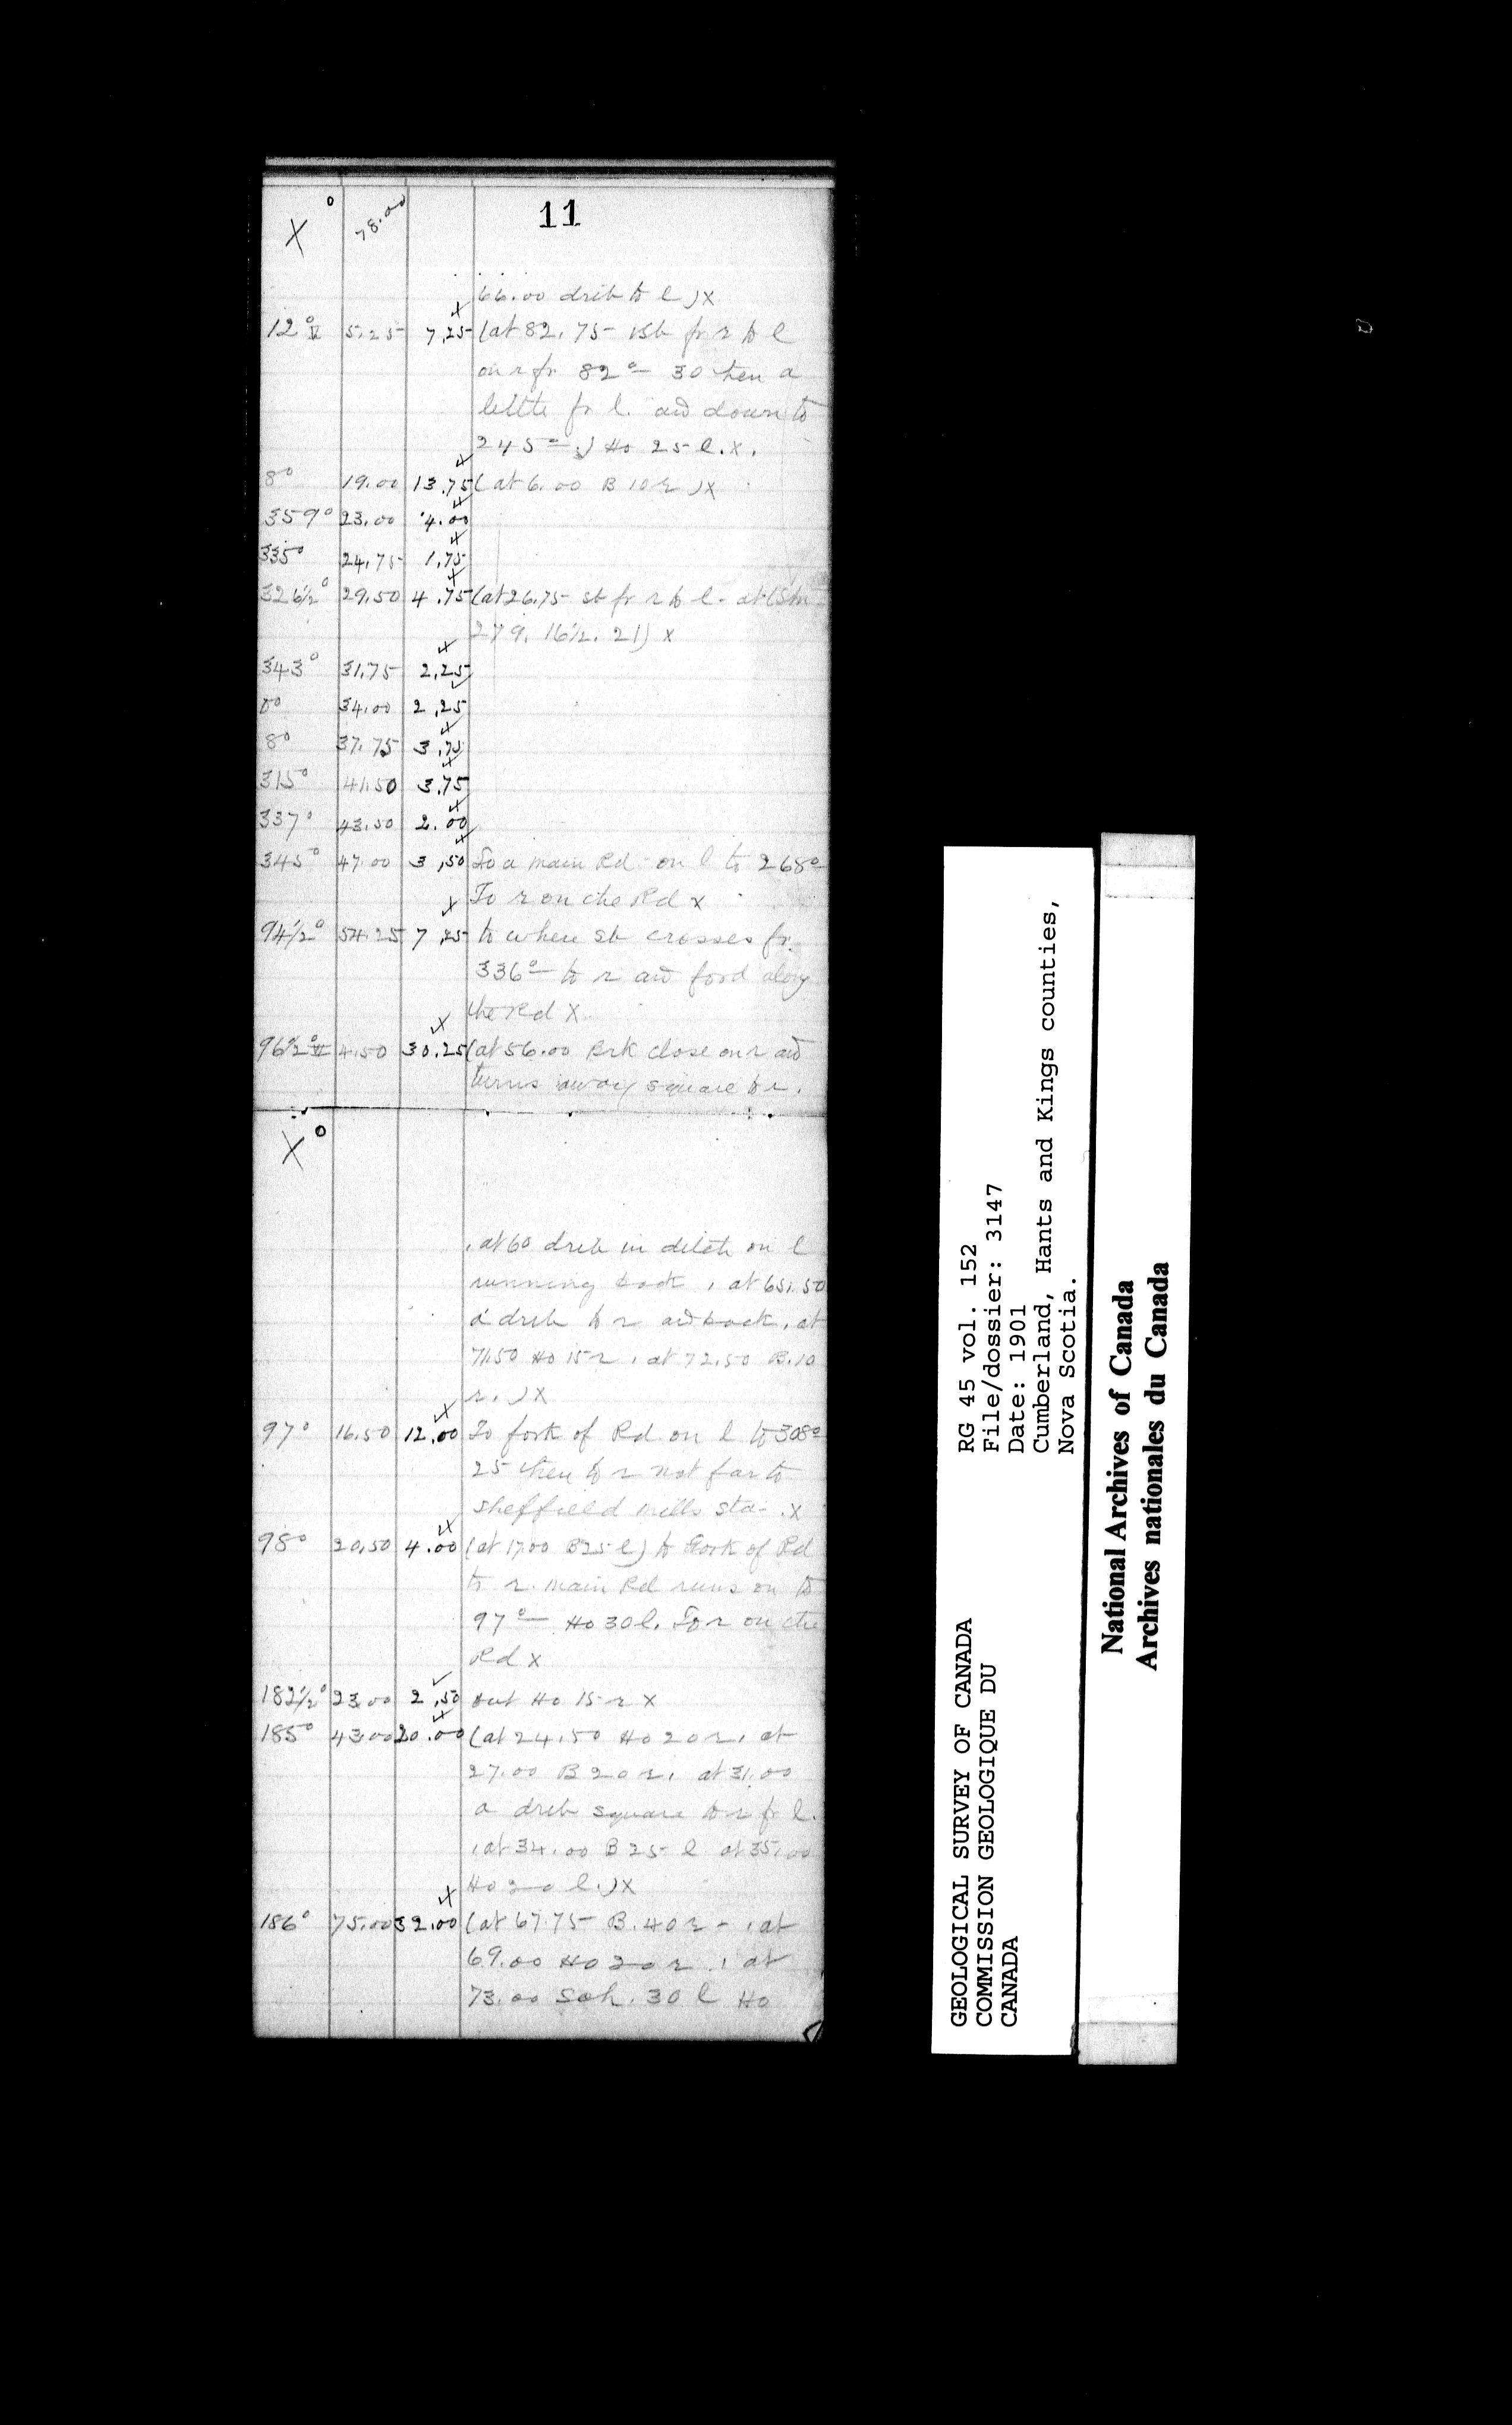 X ° 78.00 11
66.00 drib to l ) X
12° V 5.25 7.25 (at 82.75 sb fr r to l
on r fr 82° 30 then a
little fr l. and down to
245° .) Ho 25 l. X.
8° 19.00 13.75 (at 6.00 B 10 r ) X
359° 23.00 4.00
335° 24.75 1.75
326½° 29.50 4.75 (at 26.75 sb fr r to l - at
279. 16½. 21) X
343° 31.75 2.25
0° 34.00 2.25
8° 37.75 3.75
315° 41.50 3.75
337° 43.50 2.00
345° 47.00 3.50 To a main Rd on l to 268°
To r on the Rd X
94½° 54.25 7.25 to where sb crosses fr.
336° to r and ford along
the Rd X.
96½° VI 4.50 30.25 (at 56.00 Brk close on r and
turns away square to r.
X °
, at 60 drib in ditch on l
running back , at 65.50
a drib to r and back, at
71.50 Ho 15 r , at 72.50 B. 10
r. ) X
97° 16.50 12.00 To fork of Rd on l to 308°
25 then to r not far to
Sheffield Mills Sta- . X
98° 20.50 4.00 (at 17.00 B 25 l) to Fork of Rd
to r. main Rd runs on to
97° Ho 30 l. To r on the
Rd X
182½° 23.00 2.50 out Ho 15 r X
185° 43.00 20.00 (at 24.50 Ho 20 r, at
27.00 B 20 r, at 31.00
a drib square to r fr l.
, at 34.00 B 25 l at 35.00
Ho 20 l.) X
186° 75.00 32.00 (at 67.75 B. 40 r - , at
69.00 Ho 20 r , at
73.00 Sch. 30 l Ho
GEOLOGICAL SURVEY OF CANADA
COMMISSION GEOLOGIQUE DU
CANADA
RG 45 vol. 152
File/dossier: 3147
Date: 1901
Cumberland, Hants and Kings counties,
Nova Scotia.
National Archives of Canada
Archives nationales du Canada